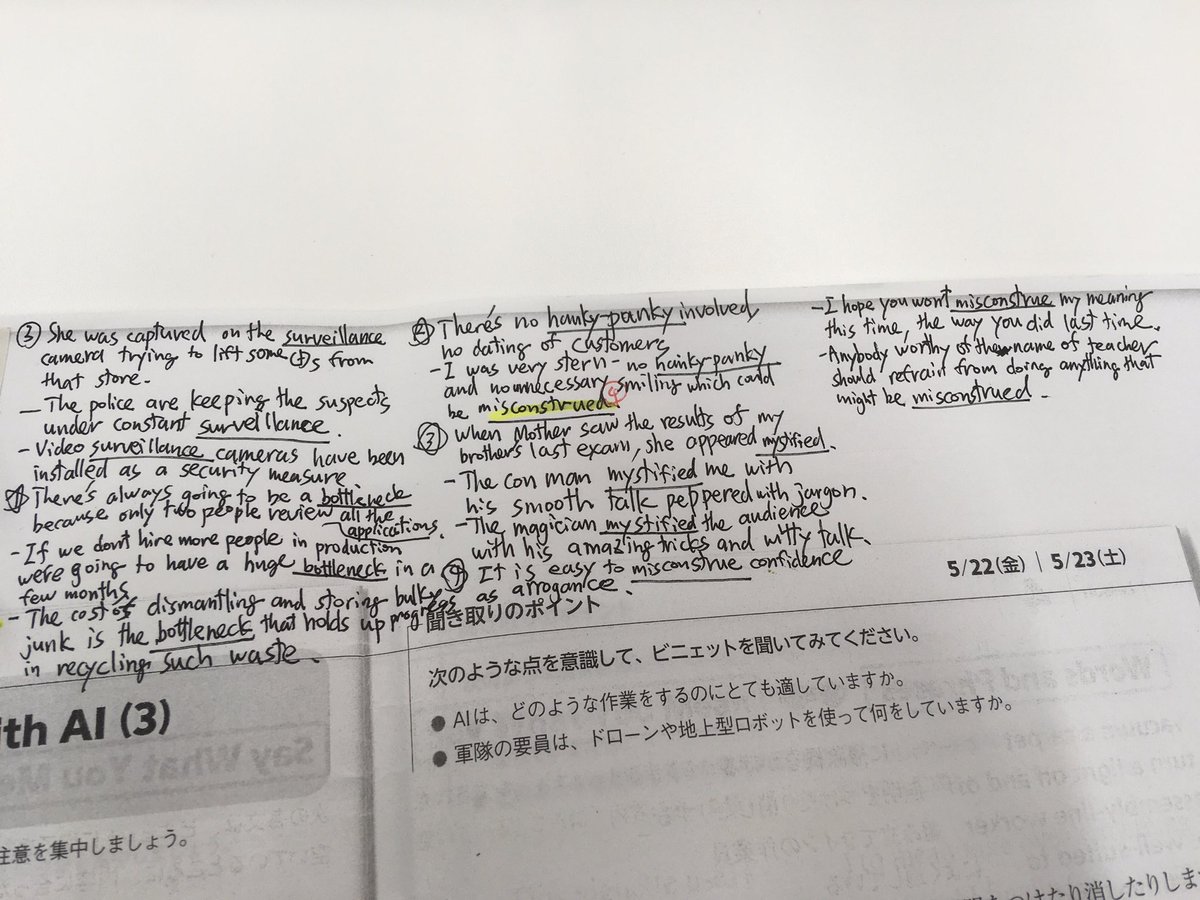 ③ She was captured on the surveillance
camera trying to lift some
from
that store.
- The police are keeping the suspects
under constant surveillance.
- Video surveillance cameras have been
installed as a security measure.
① There's always going to be a bottleneck
because only two people review all the
applications.
- If we don't hire more people in production
were going to have a huge bottleneck in a
few months.
- The cost of dismantling and storing bulky
junk is the bottleneck that holds up progress
in recycling such waste.
② There's no hanky-panky involved,
no dating of customers
- I was very stern - no hanky-panky
and no unnecessary smiling which could
be misconstrued
④
③ When Mother saw the results of my
brother's last exam, she appeared mystified.
- The con man mystified me with
his smooth talk peppered with jargon.
- The magician mystified the audience
with his amazing tricks and witty talk.
④ It is easy to misconstrue confidence
as arrogance.
- I hope you won't misconstrue my meaning
this time, the way you did last time.
- Anybody worthy of the name of teacher
should refrain from doing anything that
might be misconstrued.
5/22(金) | 5/23(土)
聞き取りのポイント
次のような点を意識して、ビニェットを聞いてみてください。
● AIは、どのような作業をするのにとても適していますか。
● 軍隊の要員は、ドローンや地上型ロボットを使って何をしていますか。
ith AI (3)
注意を集中しましょう。